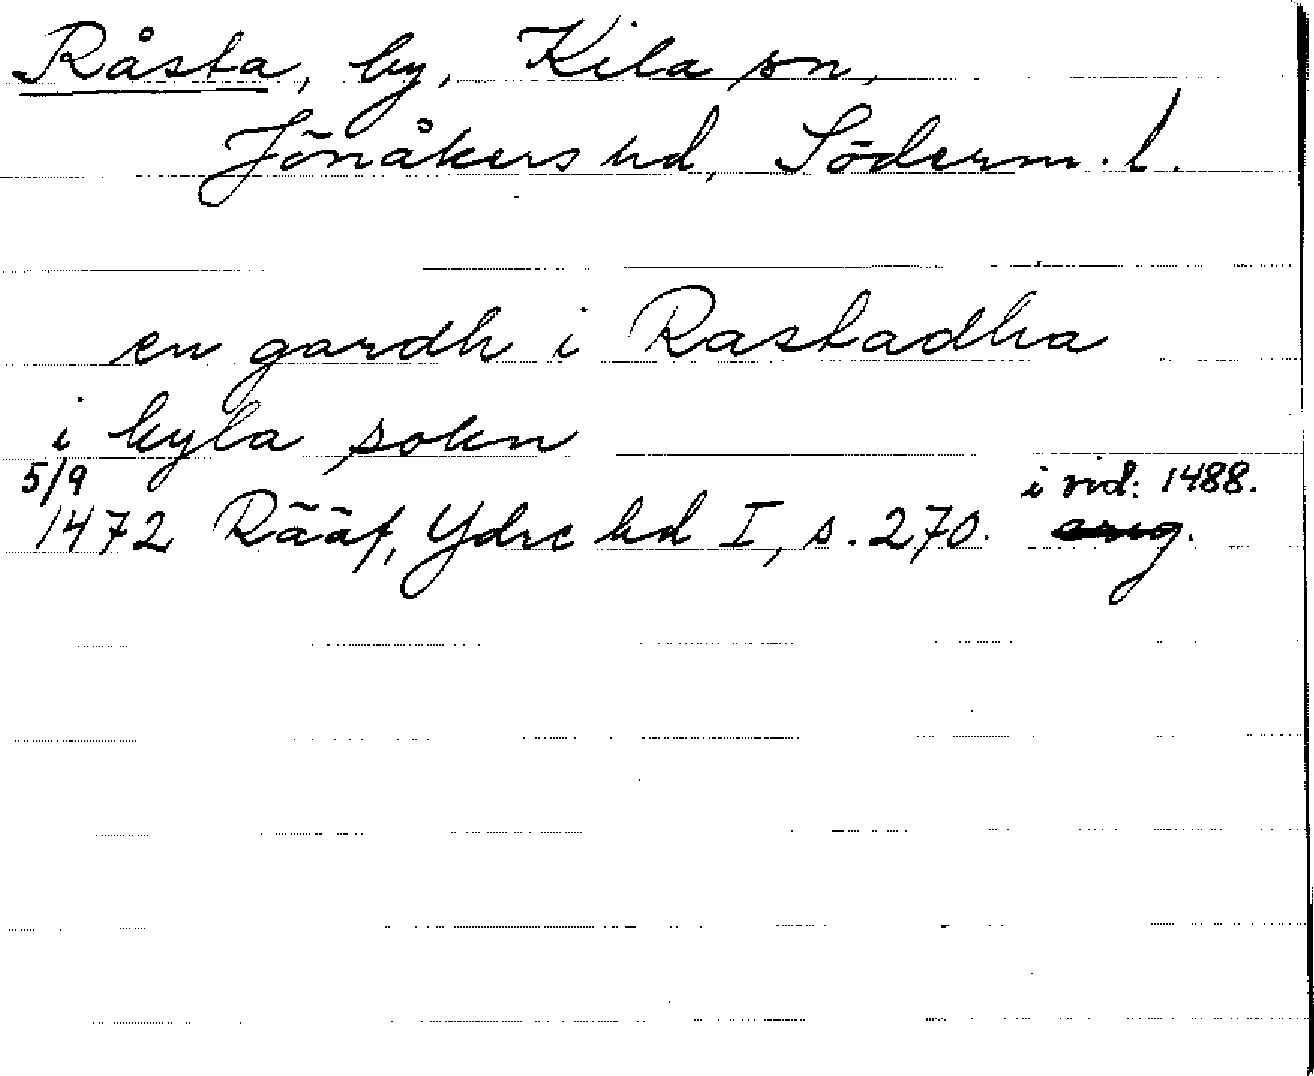 Råsta, by, Kila sn,
Jönåkers hd, Söderm. l.
en gardh i Rastadha
i kyla sokn
5/9
1472 Rääf, Ydre hd I, s. 270. i vid: 1488.
orig.